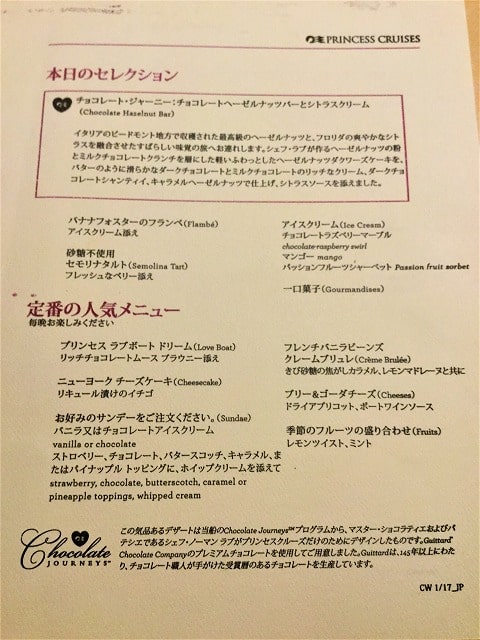 PRINCESS CRUISES
本日のセレクション
チョコレート・ジャーニー：チョコレートヘーゼルナッツバーとシトラスクリーム
（Chocolate Hazelnut Bar）
イタリアのピードモント地方で収穫された最高級のヘーゼルナッツと、フロリダの爽やかなシト
ラスを融合させたすばらしい味覚の旅へお連れします。シェフ・ラブが作るヘーゼルナッツの粉
とミルクチョコレートクランチを層にした軽いふわっとしたヘーゼルナッツダクワーズケーキを、
バターのように滑らかなダークチョコレートとミルクチョコレートのリッチなクリーム、ダークチョ
コレートシャンティイ、キャラメルヘーゼルナッツで仕上げ、シトラスソースを添えました。
バナナフォスターのフランベ（Flambé）
アイスクリーム添え
砂糖不使用
セモリナタルト（Semolina Tart）
フレッシュなベリー添え
アイスクリーム（Ice Cream）
チョコレートラズベリーマーブル
chocolate-raspberry swirl
マンゴー mango
パッションフルーツシャーベット Passion fruit sorbet
一口菓子（Gourmandises）
定番の人気メニュー
毎晩お楽しみください
プリンセス ラブボート ドリーム（Love Boat）
リッチチョコレートムース ブラウニー添え
ニューヨーク チーズケーキ（Cheesecake）
リキュール漬けのイチゴ
お好みのサンデーをご注文ください。（Sundae）
バニラ又はチョコレートアイスクリーム
vanilla or chocolate
ストロベリー、チョコレート、バタースコッチ、キャラメル、ま
たはパイナップル トッピングに、ホイップクリームを添えて
strawberry, chocolate, butterscotch, caramel or
pineapple toppings, whipped cream
フレンチバニラビーンズ
クレームブリュレ（Crème Brulée）
きび砂糖の焦がしカラメル、レモンマドレーヌと共に
ブリー＆ゴーダチーズ（Cheeses）
ドライアプリコット、ポートワインソース
季節のフルーツの盛り合わせ（Fruits）
レモンツイスト、ミント
Chocolate
JOURNEYS℠
この気品あるデザートは当船のChocolate Journeys℠プログラムから、マスター・ショコラティエおよびパ
テシエであるシェフ・ノーマン ラブがプリンセスクルーズだけのためにデザインしたものです。Guittard®
Chocolate Companyのプレミアムチョコレートを使用してご用意しました。Guittardは、145年以上にわた
り、チョコレート職人が手がけた受賞暦のあるチョコレートを生産しています。
CW 1/17_JP